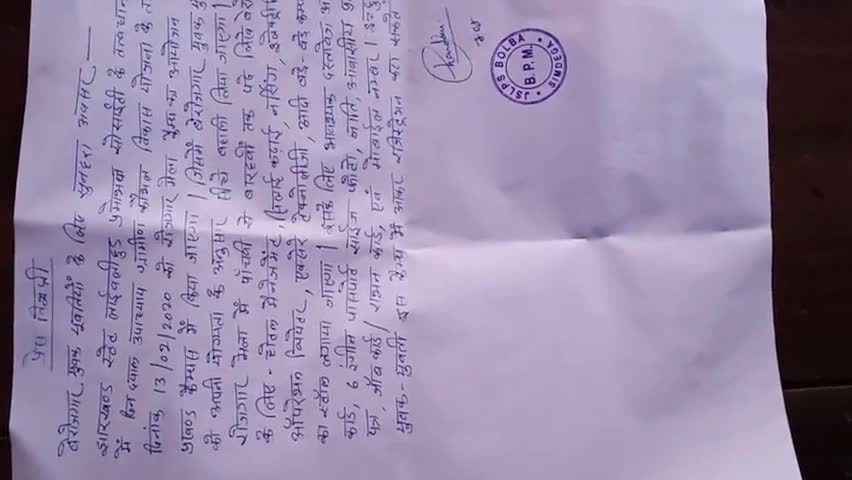 प्रेस विज्ञप्ती
बेरोजगार युवक युवतियों के लिए सुनहरा अवसर —
झारखण्ड स्टेट लाईवलीहुड प्रोमोशन सोसाईटी के तत्वधान
में दिन दयाल उपाध्याय ग्रामीण कौशल विकास योजना के त
दिनांक 13/02/2020 को रोजगार मेला कैम्प का आयोजन
प्रखण्ड कैम्पस में किया जाएगा। जिसमें बेरोजगार युवक यु
को अपनी योग्यता के अनुसार सिधे बहाली लिया जाएगा।
रोजगार मेला में पाँचवी से बारहवीं तक पढ़े लिखे
के लिए - होटल मैनेजमेंट, सिलाई कटाई, नर्सिंग,
ऑपरेशन थियेटर, एक्सरे टेक्नोलॉजी, आदि बड़े-बड़े कम्प
का स्टॉल लगाया जाएगा। इसके लिए आवश्यक दस्तावेज आ
कार्ड, 6 रंगीन पासपोर्ट साईज फोटो, जाति, आवासीय
पत्र, जॉब कार्ड/राशन कार्ड, एवं मोबाईल नम्बर।
युवक-युवती इस कैम्प में आकर रजिस्ट्रेशन करा सकते
JSLPS BOLBA
B.P.M.
SIMDEGA